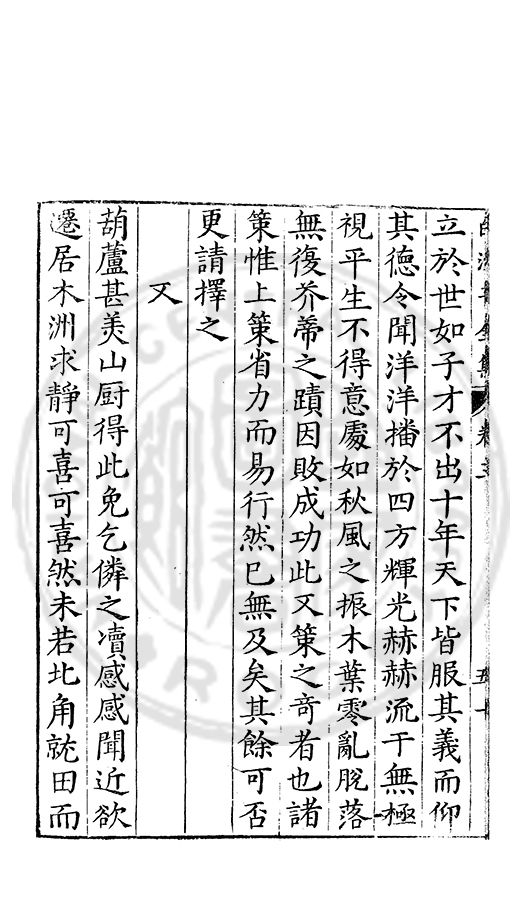 立於世如子才不出十年天下皆服其義而仰
其德令聞洋洋播於四方輝光赫赫流于無極
視平生不得意處如秋風之振木葉零亂脫落
無復芥蔕之蹟因敗成功此又策之奇者也諸
策惟上策省力而易行然已無及矣其餘可否
更請擇之
又
葫蘆甚美山厨得此免乞憐之凟感感聞近欲
遷居木洲求靜可喜可喜然未若北角就田而